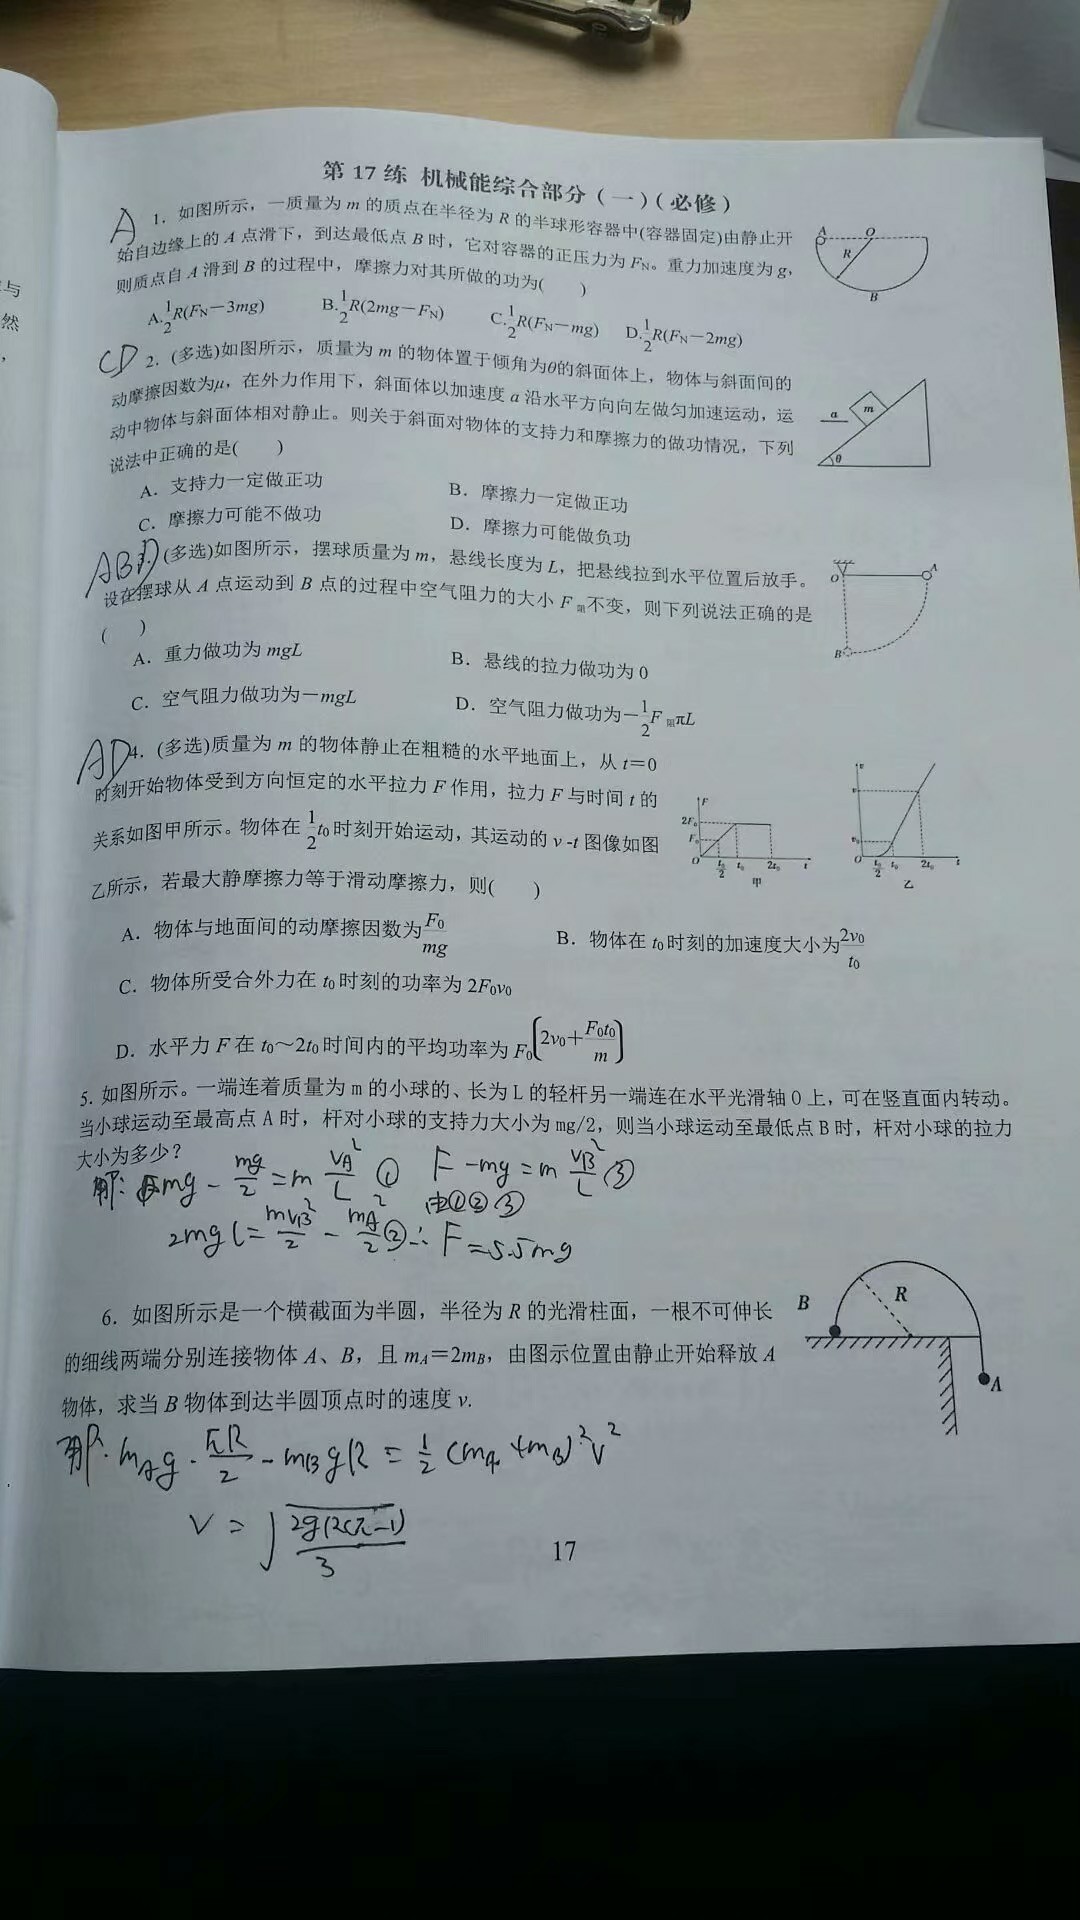 第 17 练 机械能综合部分（一）（必修）
A 1．如图所示，一质量为 m 的质点在半径为 R 的半球形容器中(容器固定)由静止开
始自边缘上的 A 点滑下，到达最低点 B 时，它对容器的正压力为 FN。重力加速度为 g，
则质点自 A 滑到 B 的过程中，摩擦力对其所做的功为(　　)
A.1/2R(FN－3mg)　B.1/2R(2mg－FN)　C.1/2R(FN－mg)　D.1/2R(FN－2mg)
A O R B
CD 2．(多选)如图所示，质量为 m 的物体置于倾角为θ的斜面体上，物体与斜面间的
动摩擦因数为μ，在外力作用下，斜面体以加速度 a 沿水平方向向左做匀加速运动，运
动中物体与斜面体相对静止。则关于斜面对物体的支持力和摩擦力的做功情况，下列
说法中正确的是(　　)
a m θ
A．支持力一定做正功　B．摩擦力一定做正功
C．摩擦力可能不做功　D．摩擦力可能做负功
ABD (多选)如图所示，摆球质量为 m，悬线长度为 L，把悬线拉到水平位置后放手。
设在摆球从 A 点运动到 B 点的过程中空气阻力的大小 F阻不变，则下列说法正确的是
(　　)
O A B
A．重力做功为 mgL　B．悬线的拉力做功为 0
C．空气阻力做功为－mgL　D．空气阻力做功为－1/2F阻πL
AD 4．(多选)质量为 m 的物体静止在粗糙的水平地面上，从 t＝0
时刻开始物体受到方向恒定的水平拉力 F 作用，拉力 F 与时间 t 的
关系如图甲所示。物体在1/2t0时刻开始运动，其运动的 v -t 图像如图
乙所示，若最大静摩擦力等于滑动摩擦力，则(　　)
F 2F0 F0 O t0/2 t0 2t0 t 甲
v v v0 O t0/2 t0 2t0 t 乙
A．物体与地面间的动摩擦因数为F0/mg　B．物体在 t0时刻的加速度大小为2v0/t0
C．物体所受合外力在 t0时刻的功率为 2F0v0
D．水平力 F 在 t0～2t0时间内的平均功率为 F0(2v0＋F0t0/m)
5. 如图所示。一端连着质量为 m 的小球的、长为 L 的轻杆另一端连在水平光滑轴 O 上，可在竖直面内转动。
当小球运动至最高点 A 时，杆对小球的支持力大小为 mg/2，则当小球运动至最低点 B 时，杆对小球的拉力
大小为多少？
解：mg - mg/2 = m vA²/L ① F - mg = m vB²/L ③
2mgL = mvB²/2 - mA²/2 ② 由①②③ ∴ F = 5.5mg
6．如图所示是一个横截面为半圆，半径为 R 的光滑柱面，一根不可伸长
的细线两端分别连接物体 A、B，且 mA＝2mB，由图示位置由静止开始释放 A
物体，求当 B 物体到达半圆顶点时的速度 v.
B R A
解: mAg·πR/2 - mBgR = 1/2 (mA+mB)²v²
v = √2gR(π-1)/3
17